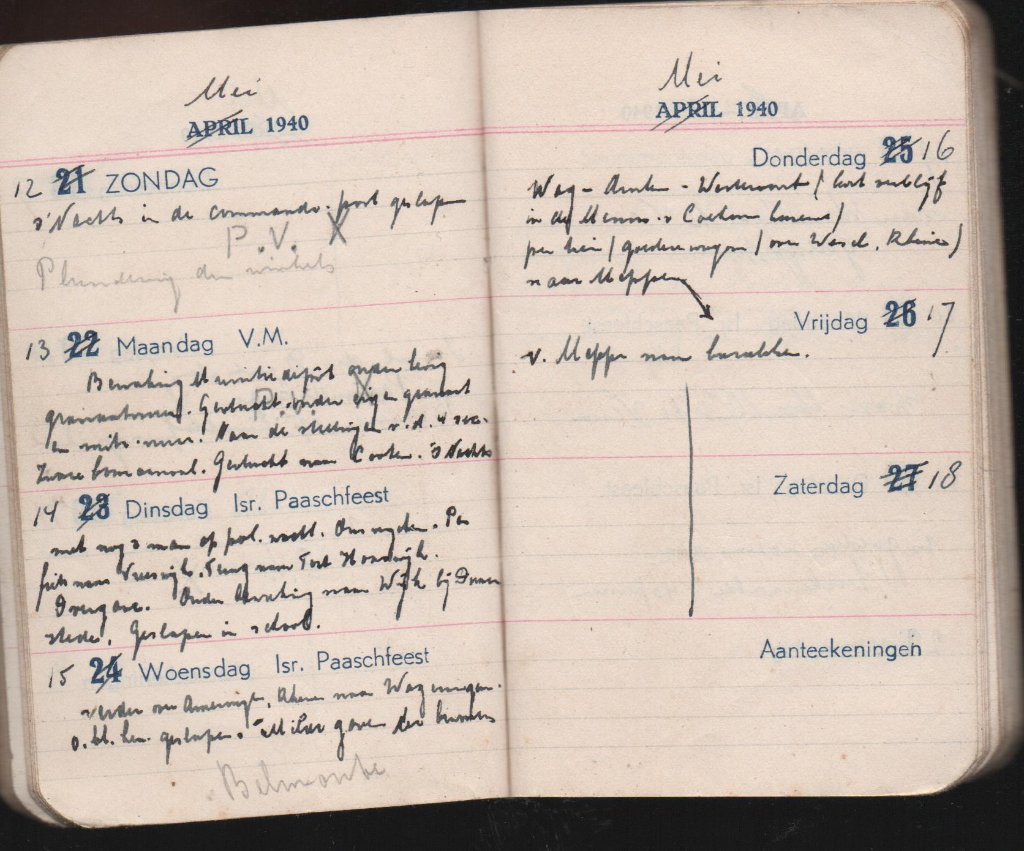 Mei
APRIL 1940
12 21 ZONDAG
's Nachts in de commando-post geslapen
P.V. X
Plundering der winkels
13 22 Maandag V.M.
Bewaking Munitiedepôt onder hevig
granaatvuur. Gevlucht onder eigen granaat
en mitr. vuur. Naar de stellingen v.d. 4 sec.
Gevlucht naar 's Nachts
P.V.
14 23 Dinsdag Isr. Paaschfeest
met nog 3 man op pol. wacht. Per
fiets naar Vreeswijk. Terug naar Fort Honswijk.
Overgave. Onder bewaking naar Wijk bij Duur
stede. Geslapen in school.
15 24 Woensdag Isr. Paaschfeest
verder over Amerongen, Rhenen naar Wageningen.
geslapen. Milde gaven der burgers
Belmonte
Mei
APRIL 1940
Donderdag 25 16
Wag - Arnhem - Westervoort / kort verblijf
in de
per trein / goederenwagon / over Wesel, Rheine /
naar Meppen
Vrijdag 26 17
v. Meppen naar barakken.
Zaterdag 27 18
Aanteekeningen